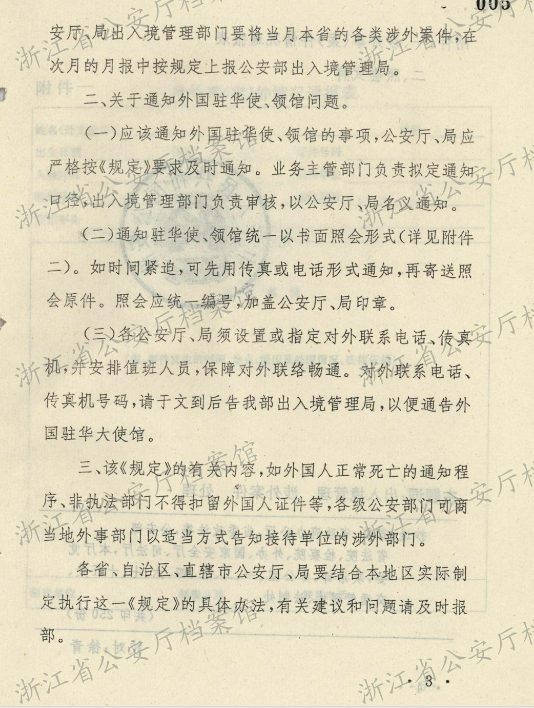 005
安厅、局出入境管理部门要将当月本省的各类涉外案件,在
次月的月报中按规定上报公安部出入境管理局。
二、关于通知外国驻华使、领馆问题。
(一)应该通知外国驻华使、领馆的事项,公安厅、局应
严格按《规定》要求及时通知。业务主管部门负责拟定通知
口径,出入境管理部门负责审核,以公安厅、局名义通知。
(二)通知驻华使、领馆统一以书面照会形式(详见附件
二)。如时间紧迫,可先用传真或电话形式通知,再寄送照
会原件。照会应统一编号,加盖公安厅、局印章。
(三)各公安厅、局须设置或指定对外联系电话、传真
机,并安排值班人员,保障对外联络畅通。对外联系电话、
传真机号码,请于文到后告我部出入境管理局,以便通告外
国驻华大使馆。
三、该《规定》的有关内容,如外国人正常死亡的通知程
序、非执法部门不得扣留外国人证件等,各级公安部门可商
当地外事部门以适当方式告知接待单位的涉外部门。
各省、自治区、直辖市公安厅、局要结合本地区实际制
定执行这一《规定》的具体办法,有关建议和问题请及时报
部。
· 3 ·
浙江省公安厅档案馆